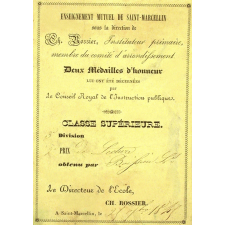 ENSEIGNEMENT MUTUEL DE SAINT-MARCELLIN
sous la Direction de
Ch. Rossier, Instituteur primaire,
membre du comité d'arrondissement
Deux Médailles d'honneur
LUI ONT ÉTÉ DÉCERNÉES
par
Le Conseil Royal de l'Instruction publique.
CLASSE SUPÉRIEURE.
Division
PRIX De Lecture
obtenu par
Le Directeur de l'École,
CH. ROSSIER.
A Saint-Marcellin, le